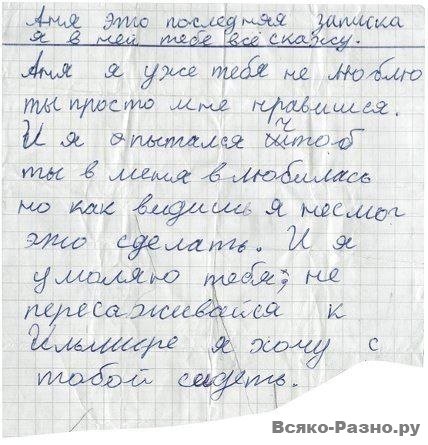 Аня это последняя записка
я в ней тебе всё скажу.
Аня я уже тебя не люблю
ты просто мне нравишся.
И я опытался чтоб
ты в меня влюбилась
но как видишь я несмог
это сделать. И я
умоляю тебя; не
пересаживайся к
Ильмире я хочу с
тобой сидеть.
Всяко-Разно.ру